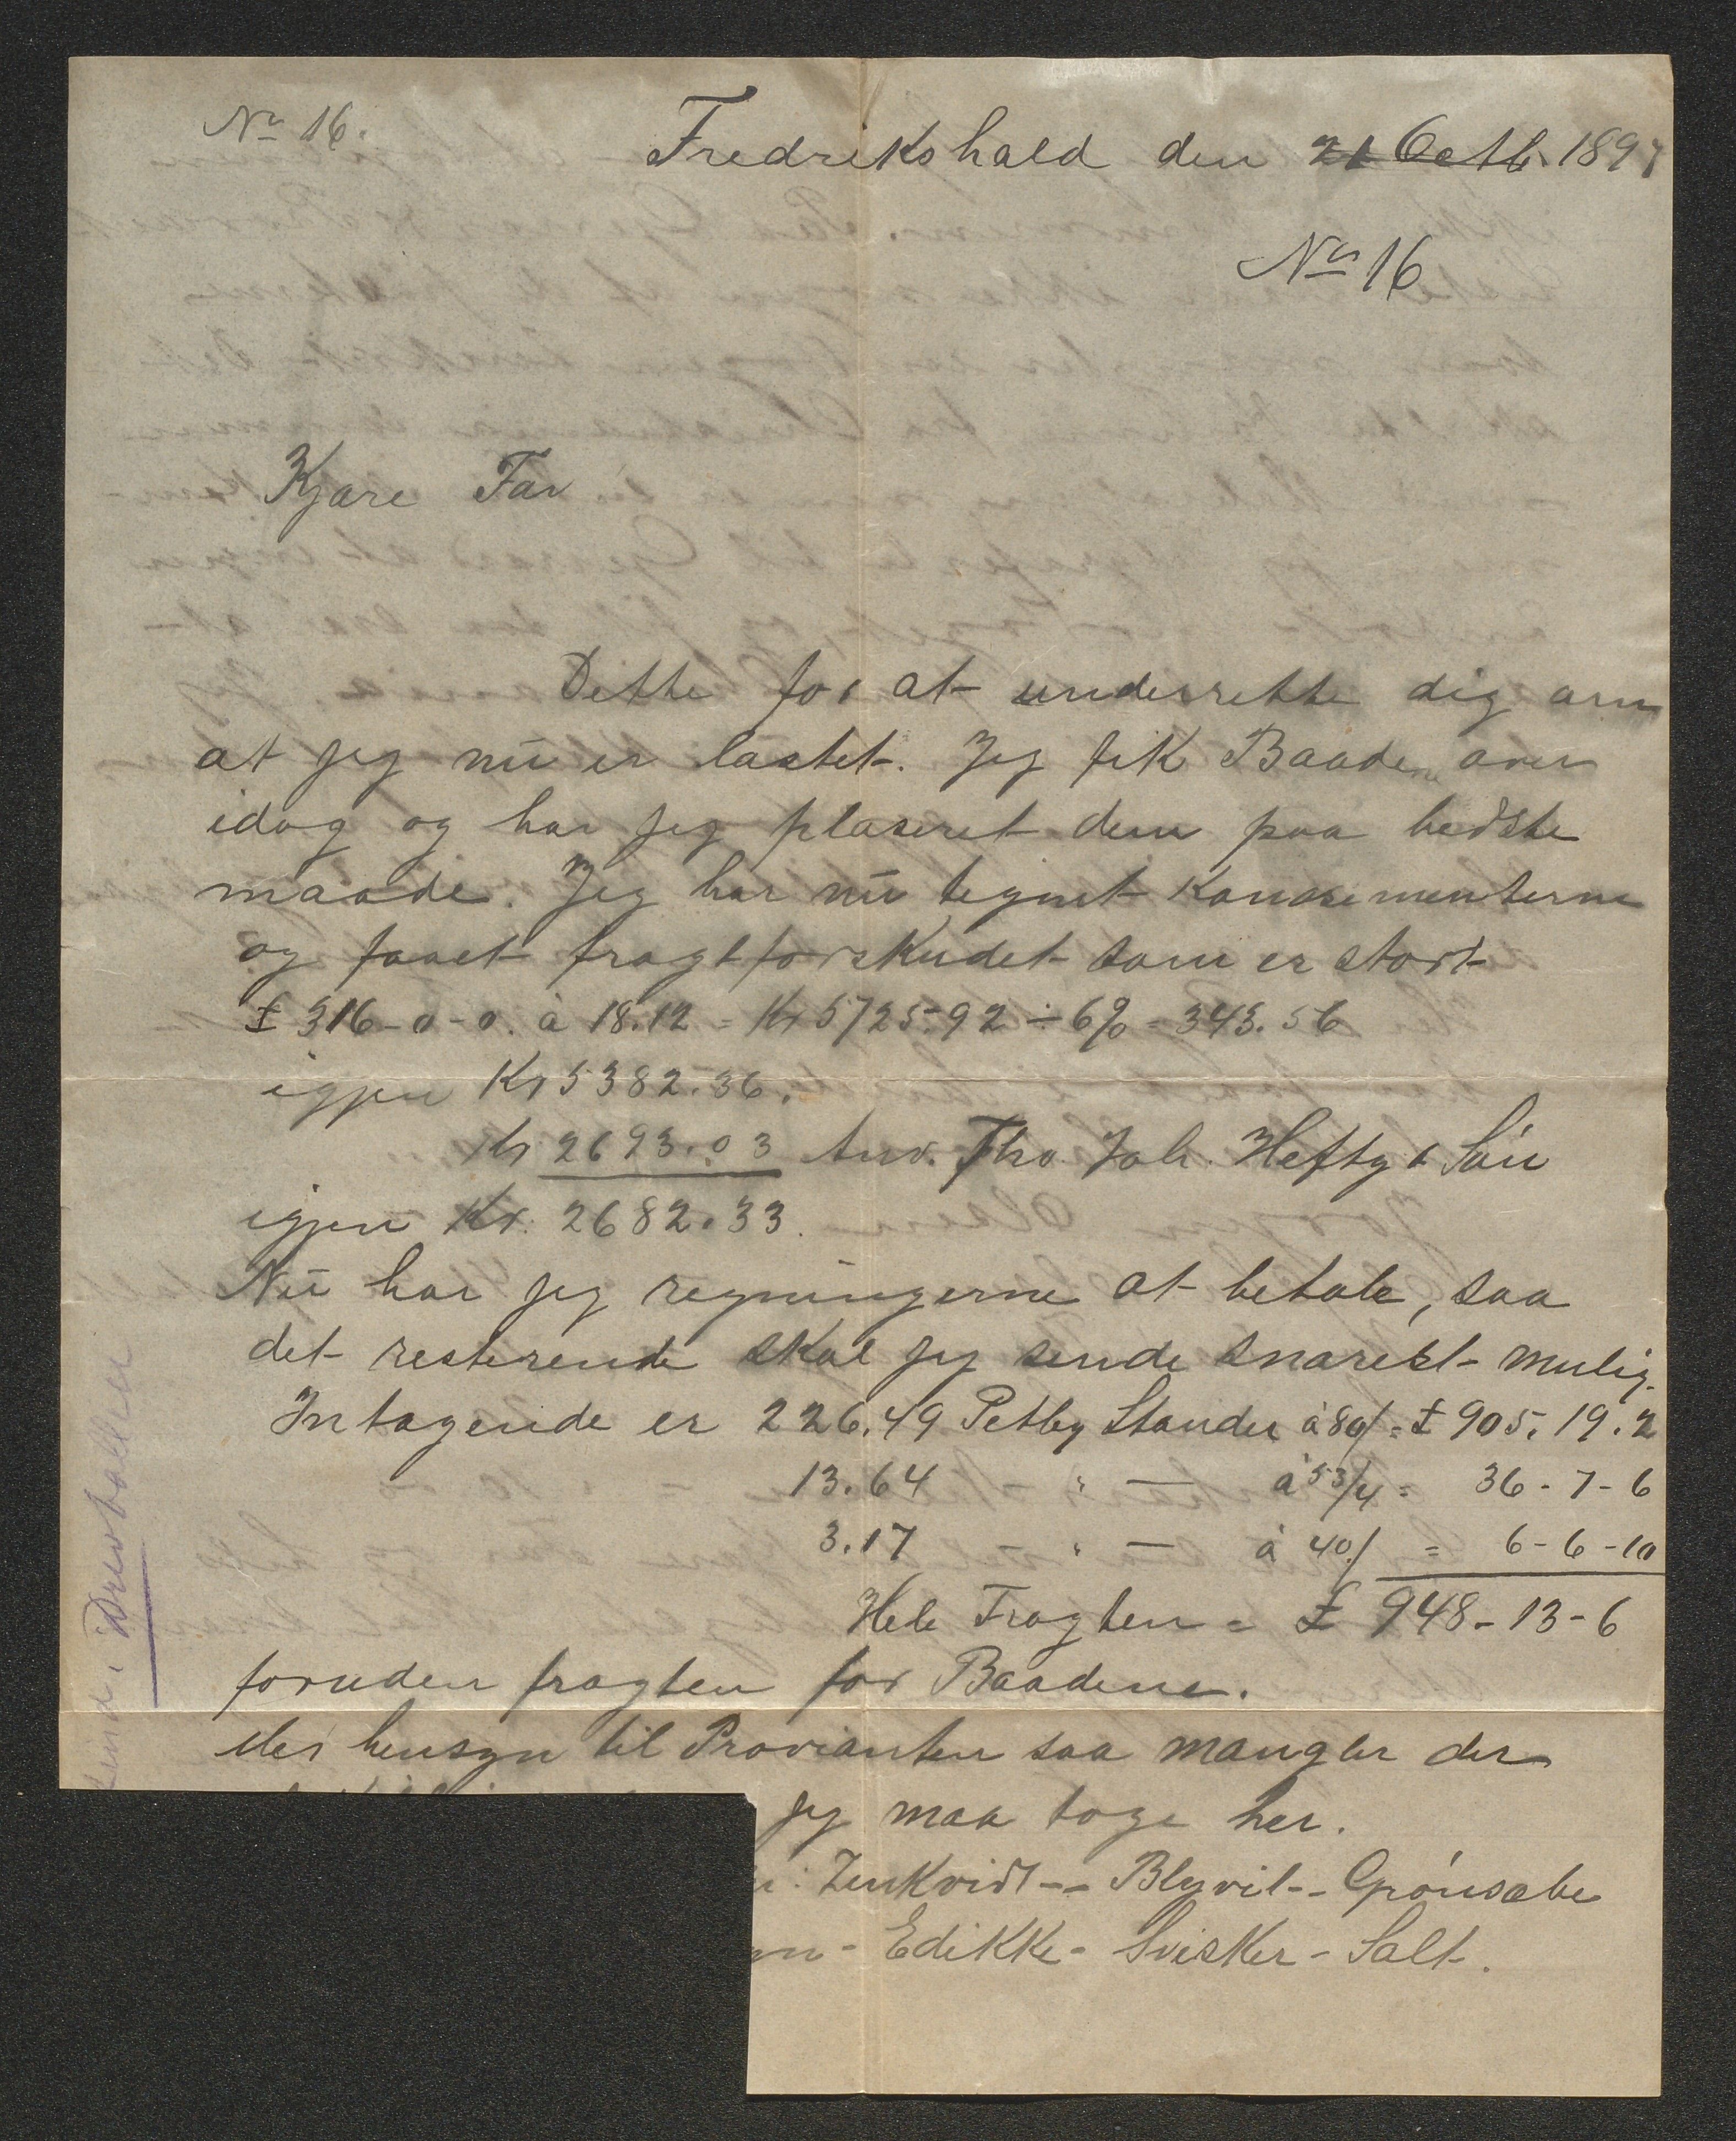 No 16.
Fredrikshald den 21 Octb. 1897
No 16
Kjære Far
Dette for at underrette dig om
at jeg nu er lastet. Jeg fik Baadene over
idag og har jeg plaseret dem paa bedste
maade. Jeg har nu tegnet Konosementerne
og faaet fragtforskudet som er stort
£ 316-0-0. à 18.12 = Kr 5725.92 ÷ 6% = 343.56
igjen Kr 5382.36.
Kr 2693.03 Anv. Tho. Joh. Heftye & Sön
igjen Kr. 2682.33.
Nu har jeg regningerne at betale, saa
det resterende skal jeg sende snarest mulig.
Intagende er 226.49 Petbg Stander à 80/ = £ 905.19.2
13.64 - " - à 53/4 = 36-7-6
3.17 - " - à 40/ = 6-6-10
Hele Fragten = £ 948-13-6
foruden fragten for Baadene.
Med hensyn til Provianten saa mangler der
jeg maa tage her.
Zinkvidt -- Blyvit -- Grönsæbe
- Edikke - Svisker - Salt.
sind i Drewsballen